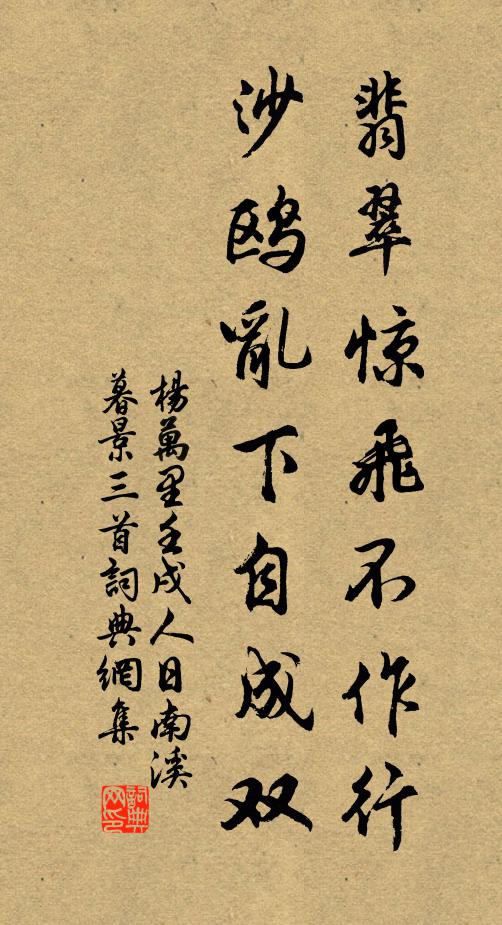 翡翠惊飞不作行
沙鸥亂下自成双
楊萬里壬戌人日南溪
暮景三首詞典網集
詞典网印